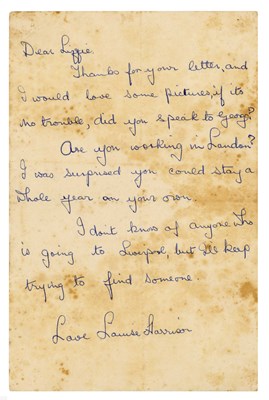 Dear Lizzie.
Thanks for your letter, and
I would love some pictures, if its
no trouble, did you speak to George?
Are you working in London?
I was surprised you could stay a
whole year on your own.
I dont know of anyone who
is going to Liverpool, but I'll keep
trying to find someone.
Love Louise Harrison